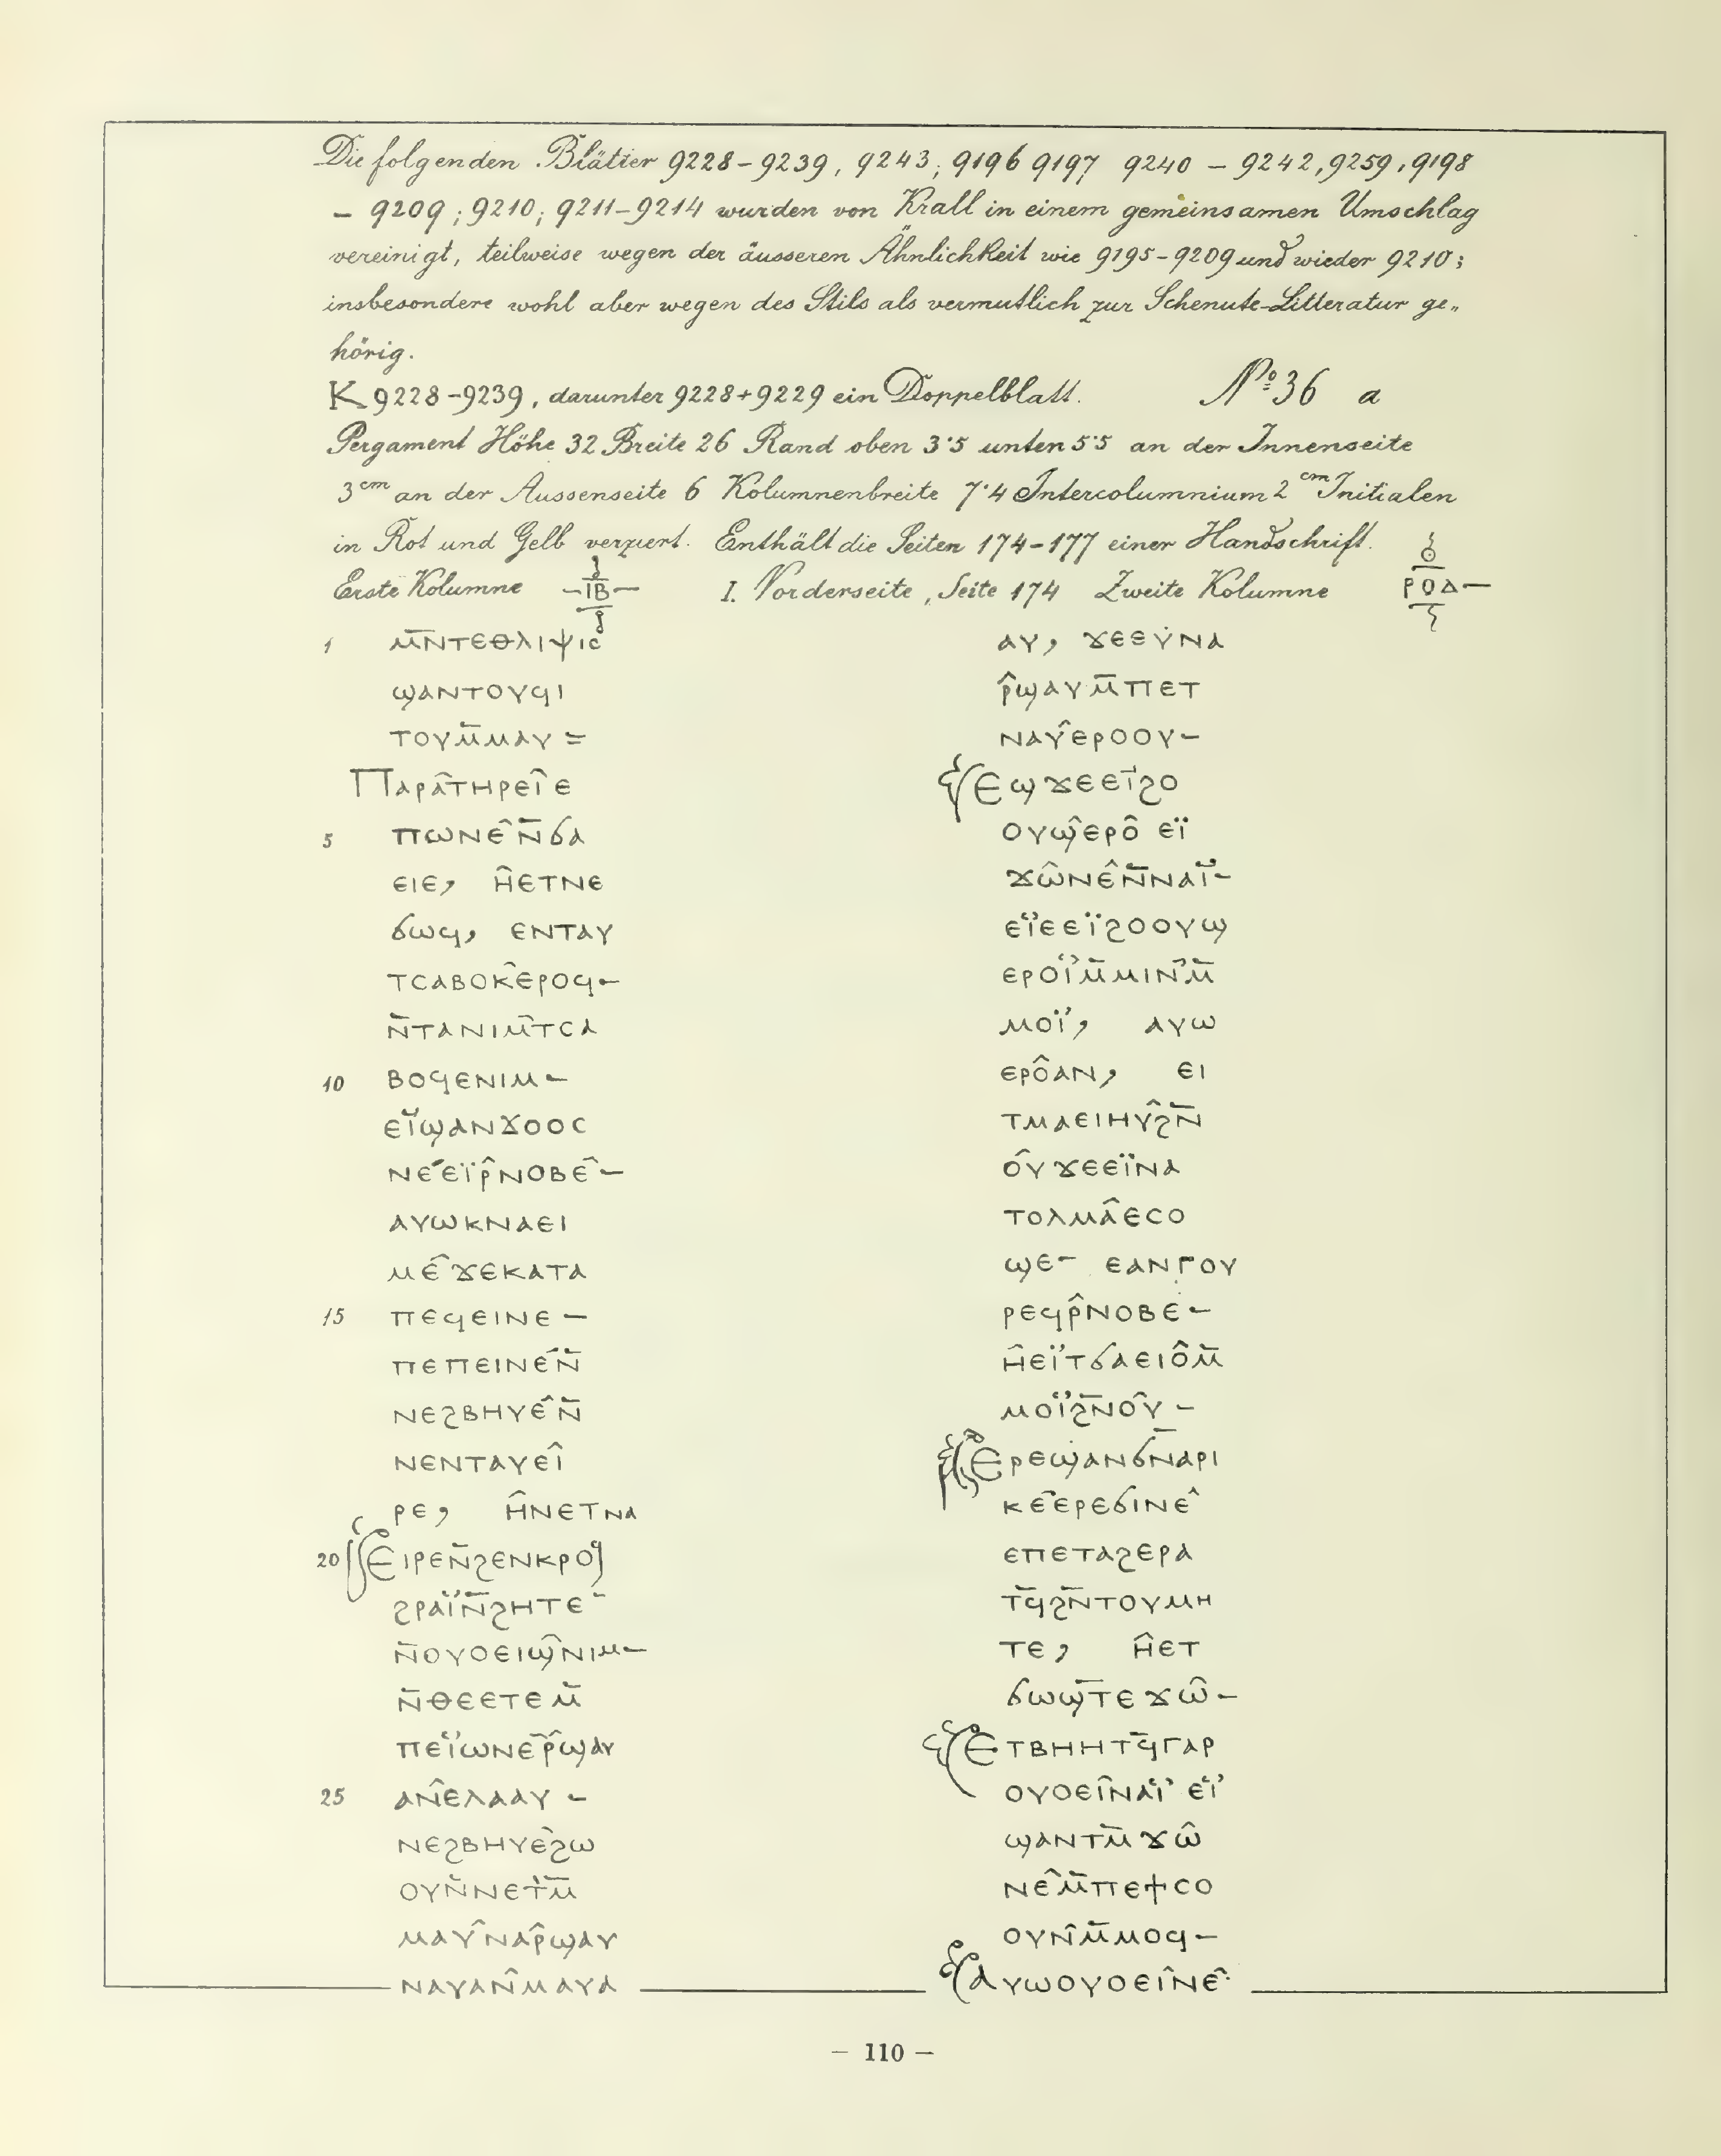 Die folgenden Blätter 9228–9239, 9243; 9196 9197 9240 – 9242, 9259, 9198
– 9209; 9210; 9211–9214 wurden von Krall in einem gemeinsamen Umschlag
vereinigt, teilweise wegen der äusseren Ähnlichkeit wie 9195–9209 und wieder 9210;
insbesondere wohl aber wegen des Stils als vermutlich zur Schenute-Litteratur ge„
hörig.
K 9228–9239, darunter 9228+9229 ein Doppelblatt. No 36 a
Pergament Höhe 32 Breite 26 Rand oben 3·5 unten 5·5 an der Innenseite
3 cm an der Aussenseite 6 Kolumnenbreite 7·4 Intercolumnium 2 cm Initialen
in Rot und Gelb verziert. Enthält die Seiten 174–177 einer Handschrift.
Erste Kolumne –ⲒⲂ– I. Vorderseite, Seite 174 Zweite Kolumne ⲢⲞⲆ–
1 ⲙ̄ⲛⲧⲉⲑⲗⲓⲯⲓⲥ
ϣⲁⲛⲧⲟⲩϥⲓ
ⲧⲟⲩⲙ̄ⲙⲁⲩ =
Ⲡⲁⲣⲁ̂ⲧⲏⲣⲉⲓ̂ⲉ
5 ⲡⲱⲛⲉ̂ⲛ̄ϭⲁ
ⲉⲓⲉ, ⲏ̂ⲉⲧⲛⲉ
ϭⲱϥ, ⲉⲛⲧⲁⲩ
ⲧⲥⲁⲃⲟⲕ̂ⲉⲣⲟϥ–
ⲛ̄ⲧⲁⲛⲓⲙ̂ⲧⲥⲁ
10 ⲃⲟϥⲉⲛⲓⲙ–
ⲉⲓ̈ϣⲁⲛϫⲟⲟⲥ
ⲛⲉ̂ⲉⲓ̈ⲣ̂ⲛⲟⲃⲉ̂–
ⲁⲩⲱⲕⲛⲁⲉⲓ
ⲙⲉ̂ϫⲉⲕⲁⲧⲁ
15 ⲡⲉϥⲉⲓⲛⲉ –
ⲡⲉⲡⲉⲓⲛⲉ̂ⲛ̄
ⲛⲉϩⲃⲏⲩⲉ̂ⲛ̄
ⲛⲉⲛⲧⲁⲩⲉⲓ̂
ⲣⲉ, ⲏ̂ⲛⲉⲧⲛⲁ
20 Ⲉⲓⲣⲉⲛ̄ϩⲉⲛⲕⲣⲟϥ
ϩⲣⲁⲓ̈ⲛ̄ϩⲏⲧⲉ–
ⲛ̄ⲟⲩⲟⲉⲓϣ̂ⲛⲓⲙ–
ⲛ̄ⲑⲉⲉⲧⲉⲙ̄
ⲡⲉⲓ̈ⲱⲛⲉⲣ̂ϣⲁⲩ
25 ⲁⲛ̂ⲉⲗⲁⲁⲩ –
ⲛⲉϩⲃⲏⲩⲉ̂ϩⲱ
ⲟⲩⲛ̄ⲛⲉⲧⲙ̄
ⲙⲁⲩ̂ⲛⲁⲣ̂ϣⲁⲩ
ⲛⲁⲩⲁⲛ̂ⲙⲁⲩⲁ
ⲁⲩ, ϫⲉⲉⲩ̇ⲛⲁ
ⲣ̂ϣⲁⲩⲙ̄ⲡⲉⲧ
ⲛⲁⲩ̂ⲉⲣⲟⲟⲩ–
Ⲉϣϫⲉⲉⲓ̈ϩⲟ
ⲟⲩϣ̂ⲉⲣⲟ̂ ⲉⲓ̈
ϫⲱ̂ⲛⲉ̂ⲛ̄ⲛⲁⲓ̈–
ⲉⲓ̈ⲉⲉⲓ̈ϩⲟⲟⲩϣ
ⲉⲣⲟⲓ̈ⲙ̄ⲙⲓⲛ̂ⲙ̄
ⲙⲟⲓ̈, ⲁⲩⲱ
ⲉⲣⲟ̂ⲁⲛ, ⲉⲓ
ⲧⲙⲁⲉⲓⲏⲩ̂ϩⲛ̄
ⲟ̂ⲩ ϫⲉⲉⲓ̈ⲛⲁ
ⲧⲟⲗⲙⲁ̂ⲉⲥⲟ
ϣⲉ– ⲉⲁⲛⲅⲟⲩ
ⲣⲉϥⲣ̂ⲛⲟⲃⲉ–
ⲏ̂ⲉⲓ̈ⲧϭⲁⲉⲓⲟ̂ⲙ̄
ⲙⲟⲓ̈ϩ̄ⲛⲟ̂ⲩ –
Ⲉⲣⲉϣⲁⲛϭ̄ⲛⲁⲣⲓ
ⲕⲉ̂ⲉⲣⲉϭⲓⲛⲉ̂
ⲉⲡⲉⲧⲁϩⲉⲣⲁ
ⲧϥ̄ϩⲛ̄ⲧⲟⲩⲙⲏ
ⲧⲉ, ⲏ̂ⲉⲧ
ϭⲱϣ̄ⲧⲉϫⲱ̂–
Ⲉⲧⲃⲏⲏⲧϥ̄ⲅⲁⲣ
ⲟⲩⲟⲉⲓ̂ⲛⲁⲓ̈ ⲉⲓ̈
ϣⲁⲛⲧⲙ̄ϫⲱ̂
ⲛⲉ̂ⲙ̄ⲡⲉϯⲥⲟ
ⲟⲩⲛ̂ⲙ̄ⲙⲟϥ–
Ⲁⲩⲱⲟⲩⲟⲉⲓ̂ⲛⲉ̂
– 110 –